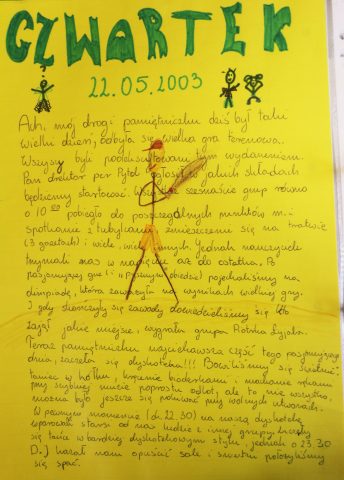 CZWARTEK
22.05.2003
Ach, mój drogi pamiętniczku dziś był taki
wielki dzień, odbyła się wielka gra terenowa.
Wszyscy byli podekscytowani tym wydarzeniem.
Pan dyrektor por Pytel ogłosił w jakich składach
będziemy startować. Wszystkie szesnaście grup równo
o 10 00 pobiegło do poszczególnych punktów m.in
spotkanie z tubylcami, zmieszczenie się na tratwie
(3 gazetach) i wiele, wiele innych. Jednak nauczyciele
trzymali nas w napięciu aż do ostatka. Po
pasjonującej grze (i pysznym obiedzie) pojechaliśmy na
olimpiadę, która zaważyła na wynikach wielkiej gry.
I gdy skończyły się zawody dowiedzieliśmy się kto
zajął jakie miejsce, wygrała grupa Piotrka
Teraz pamiętniczku najciekawsza część tego pasjonującego
dnia, zaczęła się dyskoteka!!! Bawiliśmy się świetnie
taniec w kółku, kręcenie bioderkami i machanie rękami
przy szybkiej muzie poprostu odloty ale to nie wszystko,
można było jeszcze się pobujać przy wolnych utworach.
W pewnym momencie (ok. 22.30) na naszą dyskotekę
wparowali starsi od nas ludzie z innej grupy i zaczęły
się tańce w bardziej dyskotekowym stylu, jednak o 23.30
D.J kazał nam opuścić salę i smutni położyliśmy
się spać.